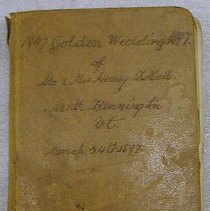 1847 Golden Wedding 1897.
of
Mr & Mrs Henry D Hall.
No Bennington
Vt.
March 24th 1897.